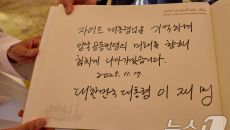 자이드 대통령님을 기억하며
양국 공동번영의 미래를 향해
힘차게 나아가겠습니다.
2025. 11. 17.
대한민국 대통령 이재명
뉴스